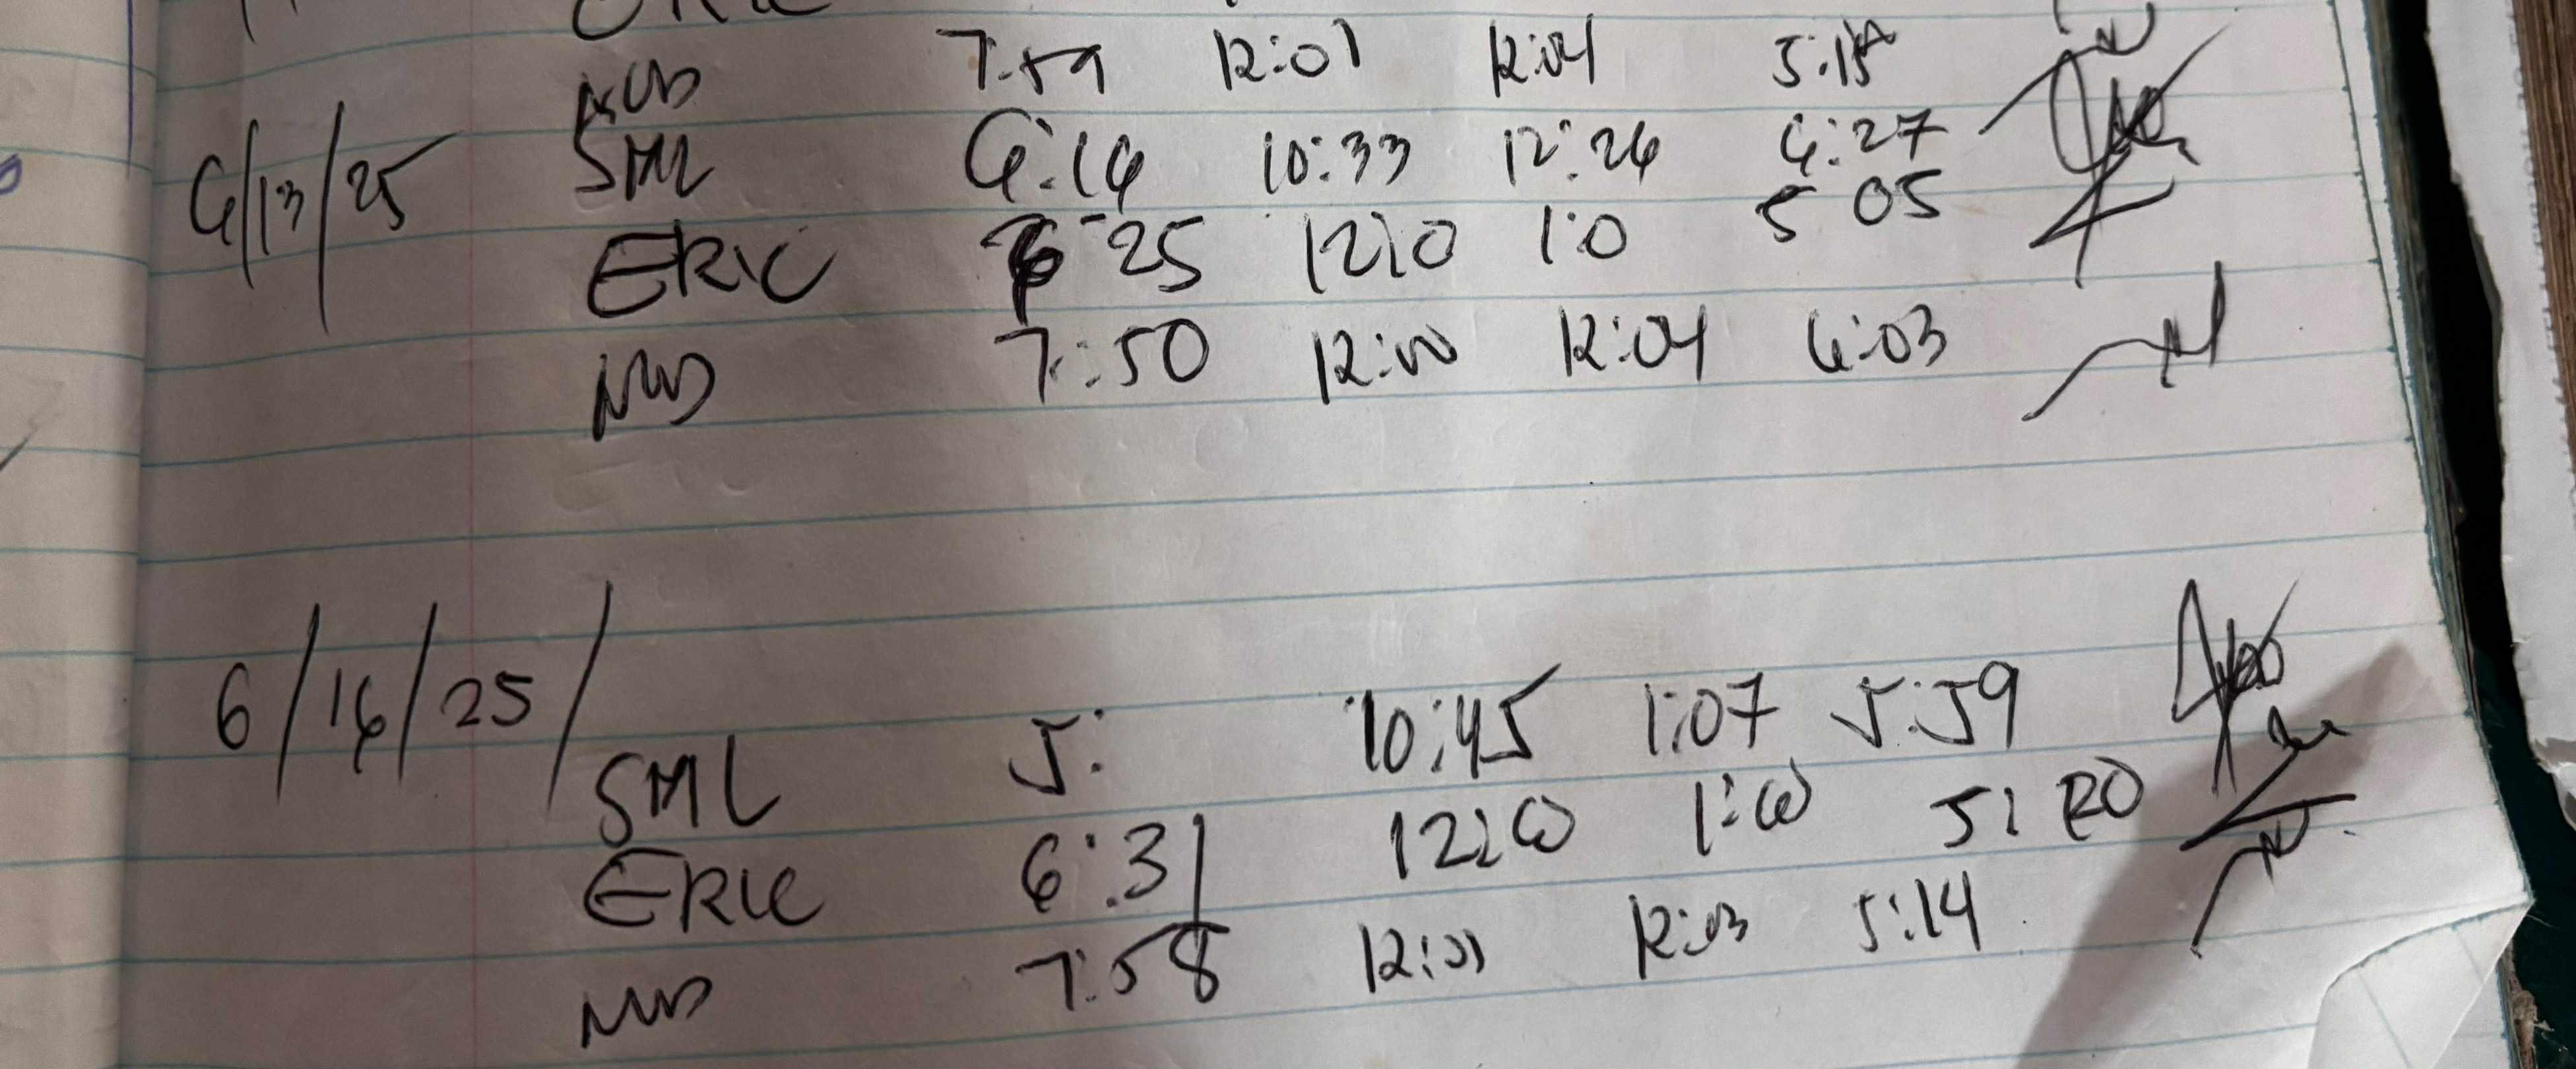 7:59 12:01 12:04 5:15
6/13/25 SML 6:16 10:33 12:26 6:27
ERIC 6 25 12:0 1:0 5 05
7:50 12:00 12:04 6:03
6/16/25/
SML 5: 10:45 1:07 5:59
ERIC 6:31 12:00 1:00 5: 20
7:58 12:01 12:03 5:14